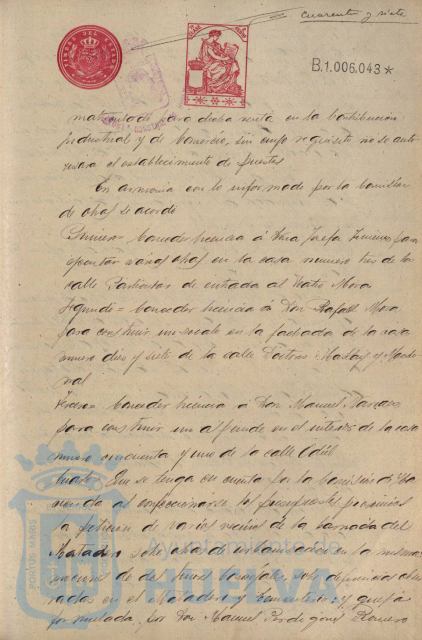 cuarenta y siete
B.1.006.043*
matriculado para dicha venta en la Contribución
industrial y de Comercio, sin cuyo requisito no se auto-
rizara el establecimiento de puestos
En armonia con lo informado por la Comisión
de obras se acordó
Primero= Conceder licencia á Doña Josefa Jimenez para
ejecutar varias obras en la casa numero tres de la
calle Particular de entrada al Teatro Mora
Segundo= Conceder licencia á Don Rafael Mora
para construir un zocalo en la fachada de la casa
numero diez y siete de la calle Doctores
Tercero= Conceder licencia á Don Manuel
para construir un en el interior de la casa
numero cincuenta y uno de la calle
Cuarto= Que se tenga en cuenta por la Comisión de Ha-
cienda al confeccionarse los presupuestos proximos
la peticion de varios vecinos de la barriada del
Matadero sobre obras de urbanizacion en la misma
mociones de del sobre deficiencias obser-
vadas en el Matadero y Cementerio y queja
formulada, por Don Manuel Perdigones Romero
PORTUS MARIS
Ayuntamiento de
HUELVA